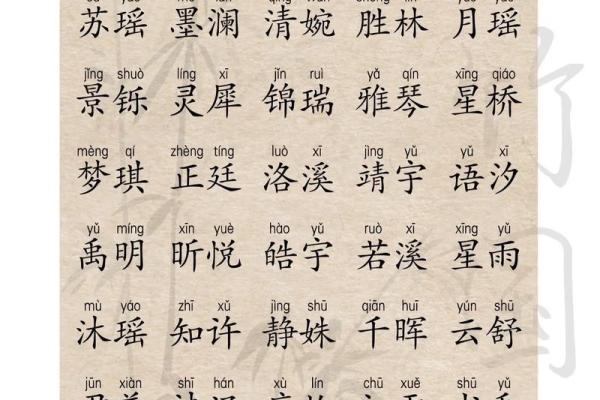 苏瑶 墨澜 清婉 胜林 月瑶
jǐng shuò líng xī jǐn ruì yǎ qín xīng qiáo
景铄 灵犀 锦瑞 雅琴 星桥
mèng qí zhèng tíng luò xī jìng yǔ yǔ xī
梦琪 正廷 洛溪 靖宇 语汐
yǔ míng xīn yuè hào yǔ ruò xī xīng yǔ
禹明 昕悦 皓宇 若溪 星雨
mù yáo zhī xǔ jìng shū qiān huī yún shū
沐瑶 知许 静姝 千晖 云舒
jūn xiàn shī hán xù lín chū xuě shū yǔ